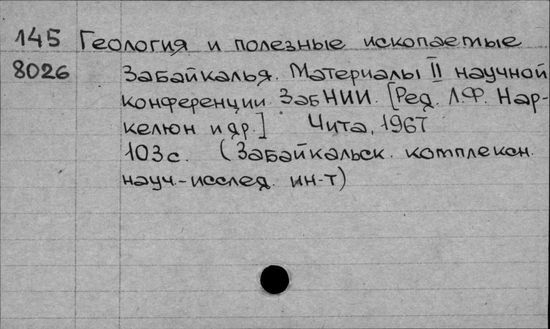 145 Геология и полезные ископаемые
8026 Забайкалья. Материалы II научной
конференции ЗабНИИ. [Ред. Л.Ф. Нар-
келюн и др.] Чита, 1967
103 с. (Забайкальск. комплексн.
науч.-исслед. ин-т)